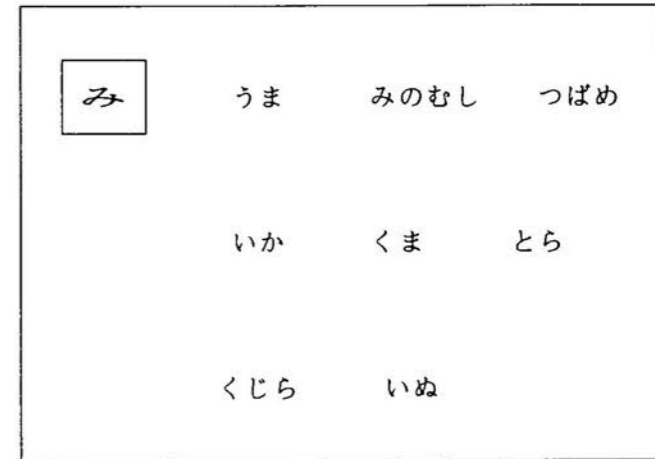 み うま みのむし つばめ
いか くま とら
くじら いぬ